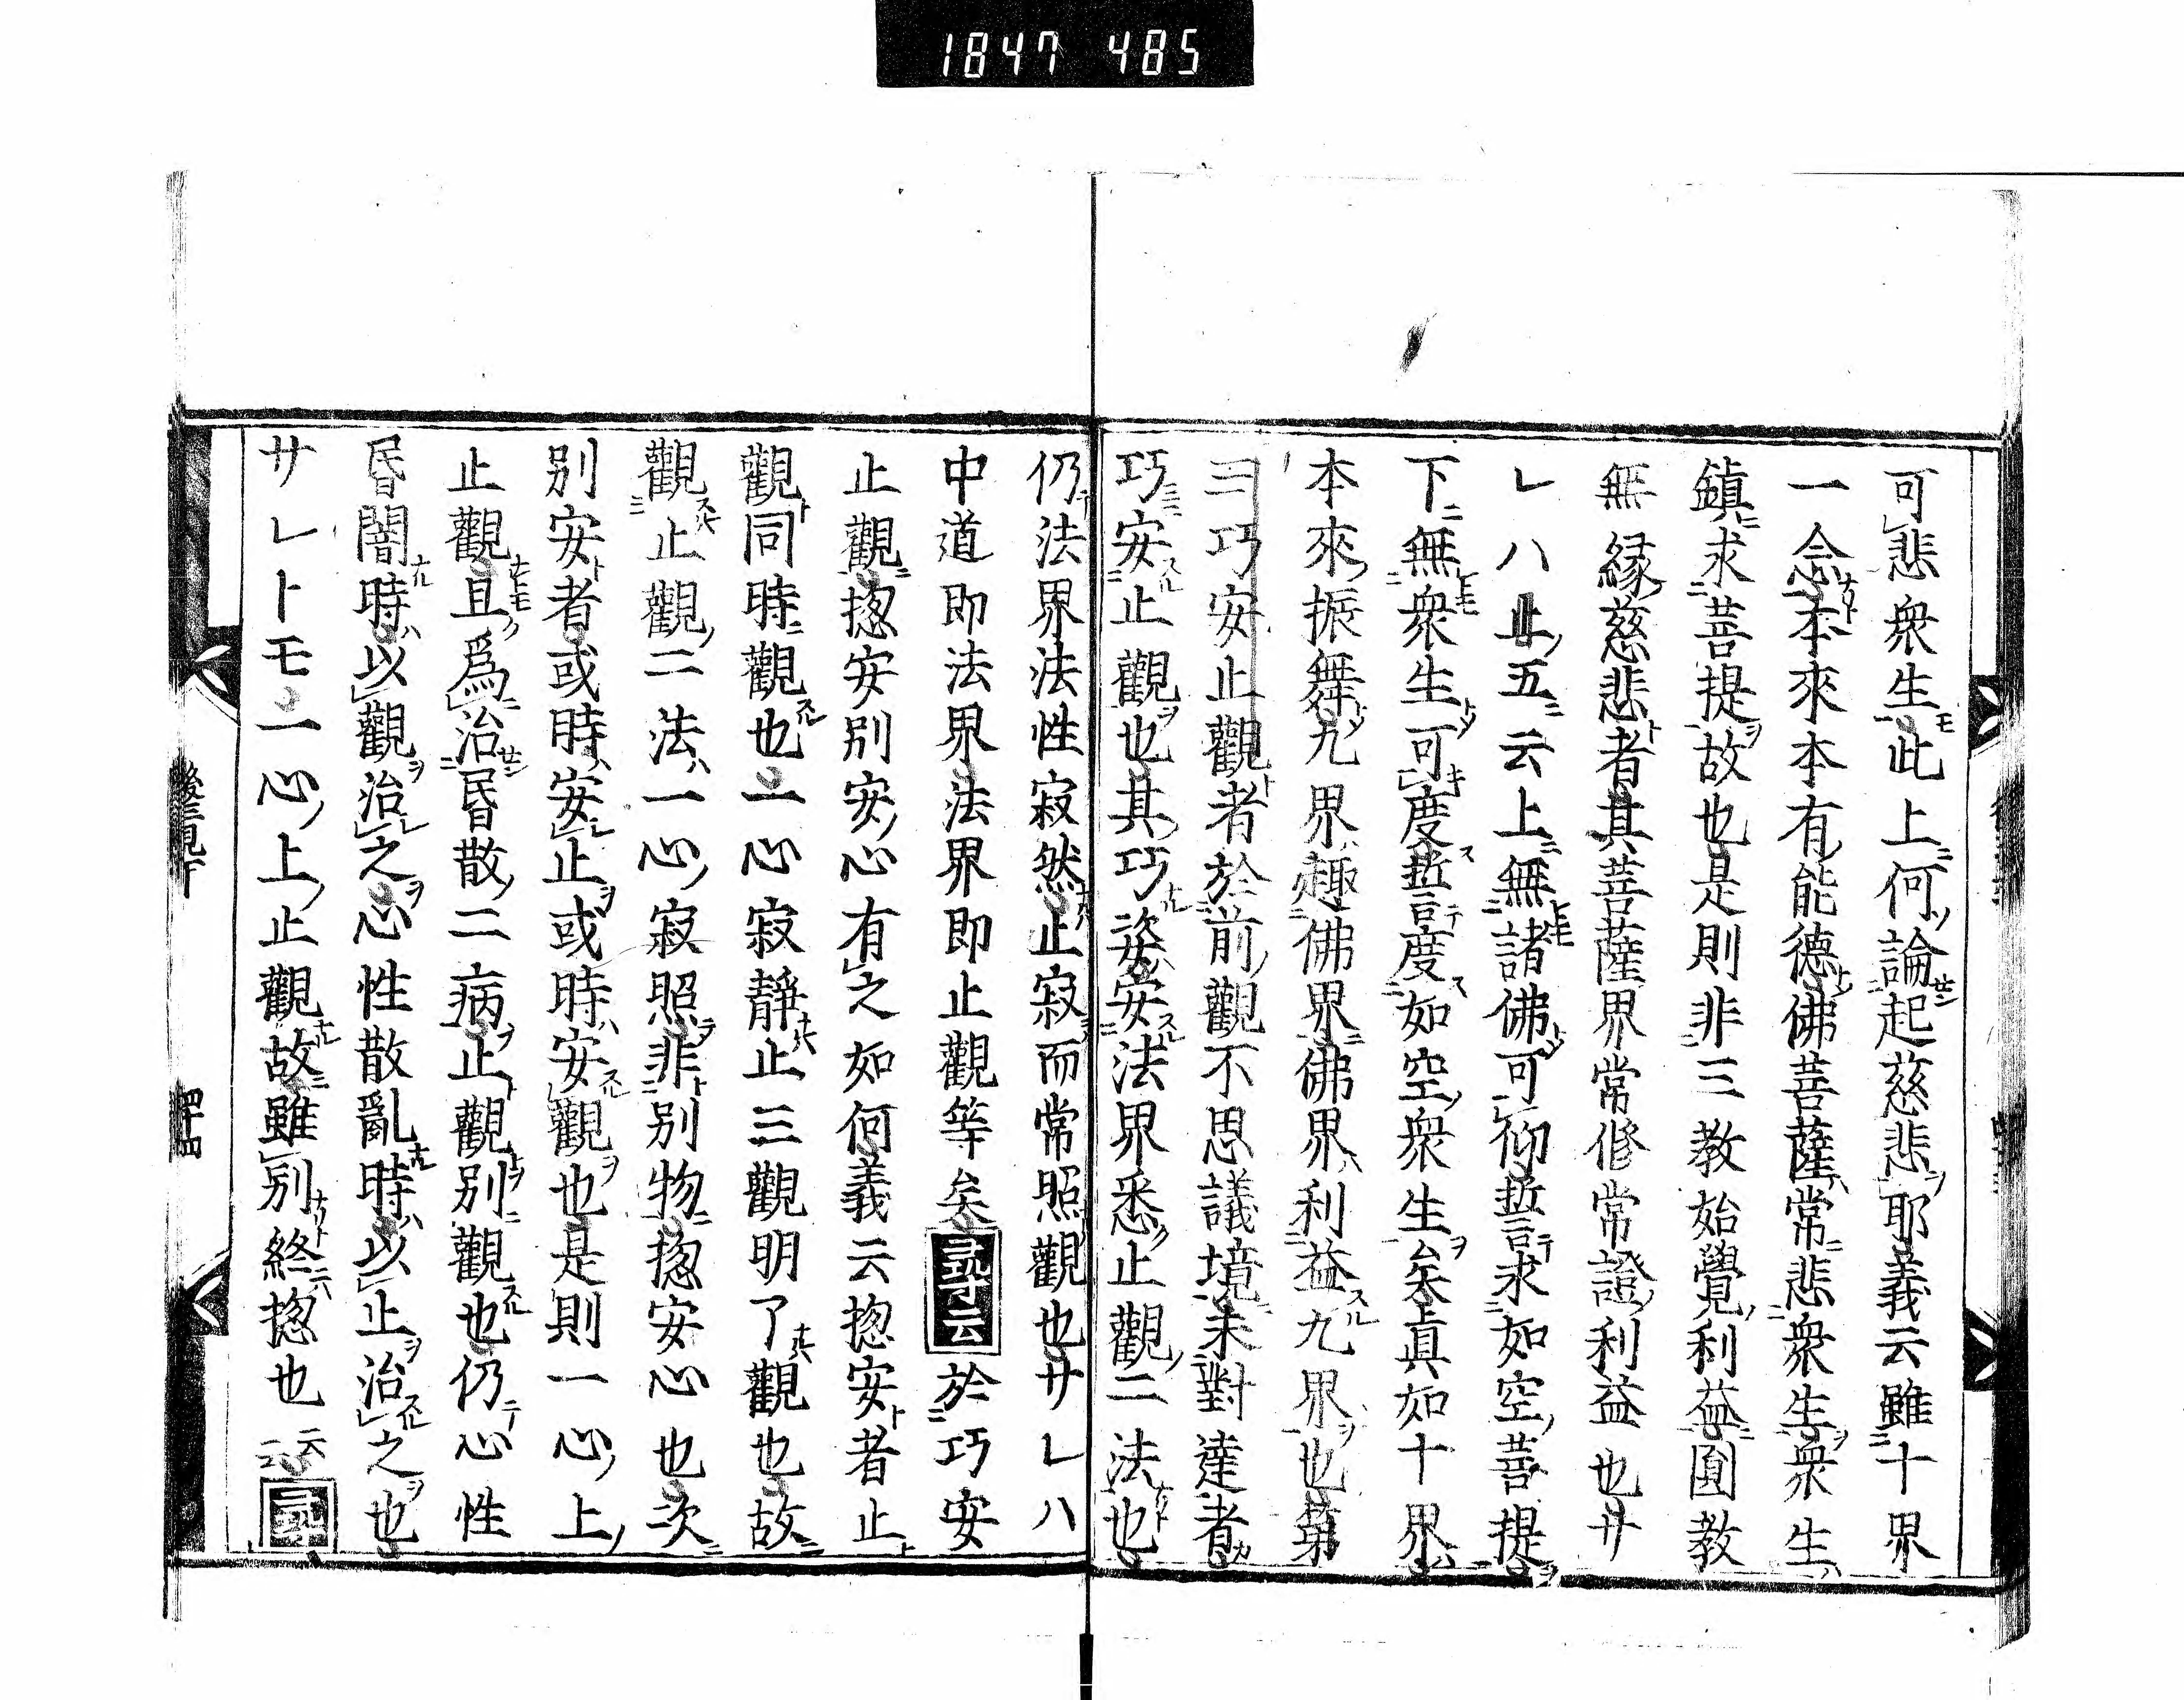 1847 485
可悲衆生此上何論起慈悲耶義云雖十界
一念本來本有能德佛菩薩常悲衆生衆生
鎮求菩提故也是則非三教始覺利益圓教
無縁慈悲者其菩薩界常修常證利益也サ
レハ止五云上無諸佛可仰誓求如空菩提
下無衆生可度誓度如空衆生矣真如十界
本來振舞九界趣佛界佛界利益九界也第
三巧安止觀者於前觀不思議境未對達者
巧安止觀也其巧姿安法界悉止觀二法也
仍法界法性寂然止寂而常照觀也サレハ
中道即法界法界即止觀等矣尋云於巧安
止觀揔安別安心有之如何義云揔安者止
觀同時觀也一心寂靜止三觀明了觀也故
觀止觀二法一心寂照非別物揔安心也次
別安者或時安止或時安觀也是則一心上
止觀且爲治昏散二病止觀別觀也仍心性
昏闇時以觀治之心性散亂時以止治之也
サレトモ一心上止觀故雖別終揔也云云尋